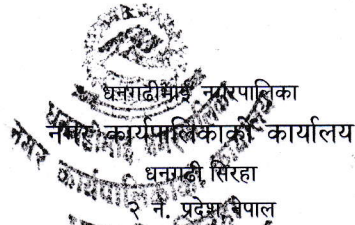 धनगढीमाई नगरपालिका
नगर कार्यपालिकाको कार्यालय
धनगढी, सिरहा
२ नं. प्रदेश, नेपाल